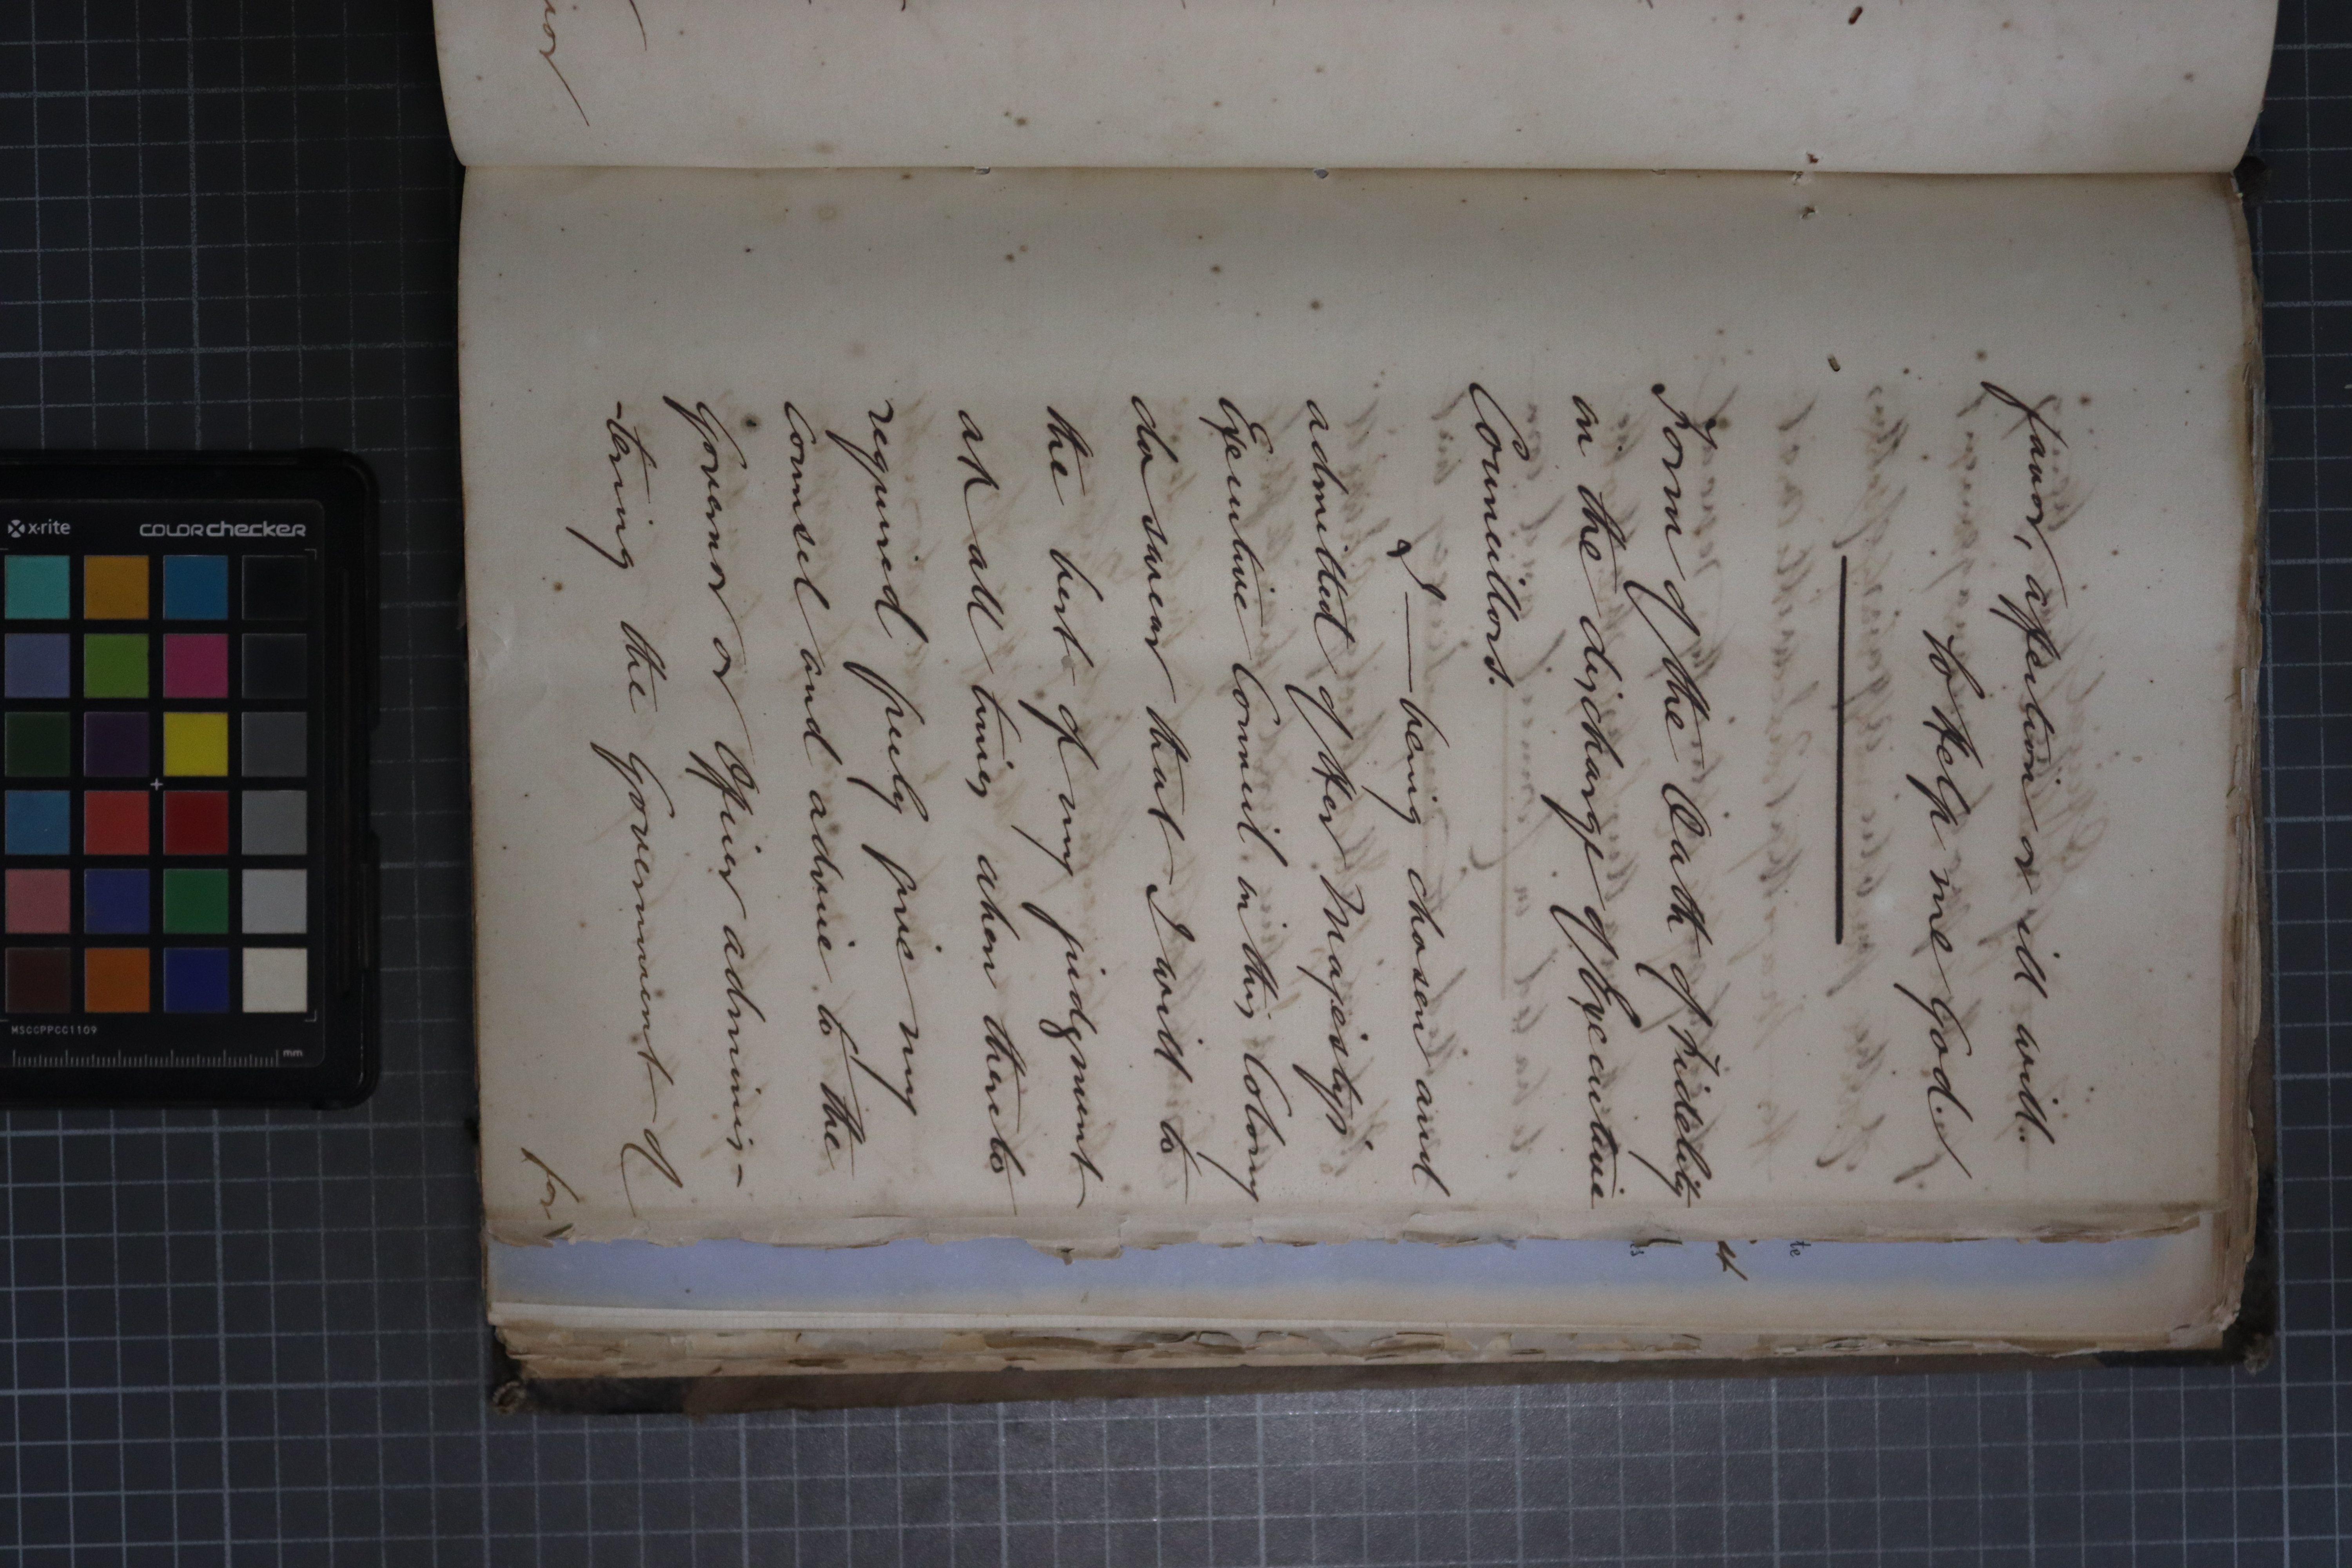 favor, affection or ill will.
So Help me God.
Form of the Oath of Fidelity
in the discharge of Executive
Councillors.
"I — being chosen and
admitted of Her Majesty's
Executive Council in this Colony
do swear that I will to
the best of my judgment
at all times when thereto
required freely give my
counsel and advice to the
Governor or Officer adminis-
-tering the Government of
for
x-rite
COLORchecker
MSCCPPCC1109
mm
it
te
ls